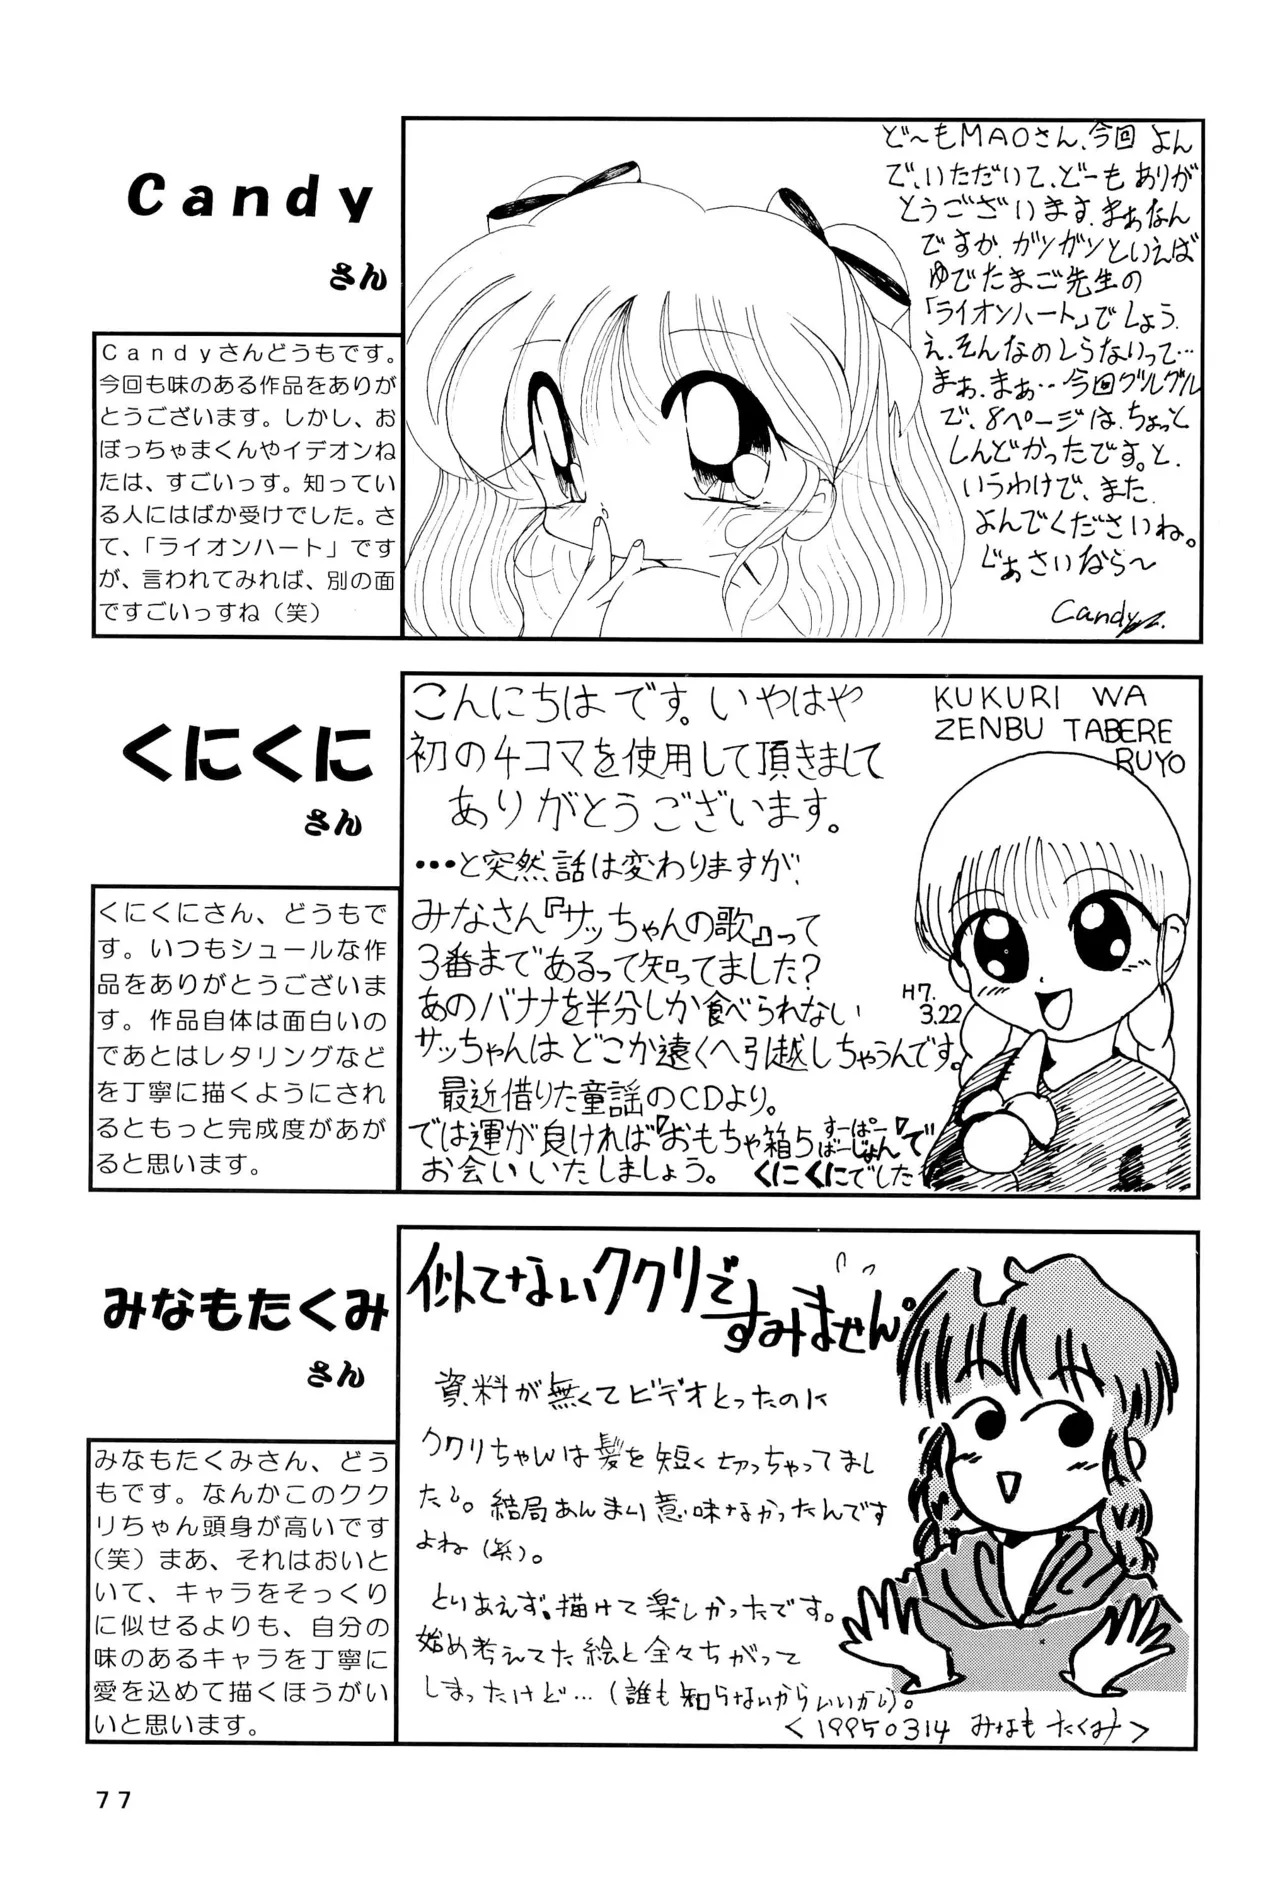 Candy
さん
Candyさんどうもです。
今回も味のある作品をありが
とうございます。しかし、お
ぼっちゃまくんやイデオンね
たは、すごいっす。知ってい
る人にはばか受けでした。さ
て、「ライオンハート」です
が、言われてみれば、別の面
ですごいっすね（笑）
ど〜もMAOさん、今回 よん
で、いただいて、どーも ありが
とうございます、まぁなん
ですか、ガンガンといえば
ゆでたまご先生の
「ライオンハート」でしょう、
え、そんなのしらないって…
まぁ、まぁ… 今回グルグル
で、8ページは、ちょっと
しんどかったです。と、
いうわけで、また、
よんでくださいね。
じぁさいなら〜
Candy
くにくに
さん
くにくにさん、どうもで
す。いつもシュールな作
品をありがとうございま
す。作品自体は面白いの
であとはレタリングなど
を丁寧に描くようにされ
るともっと完成度があが
ると思います。
こんにちは です。いやはや
初の4コマを使用して頂きまして
ありがとうございます。
・・・と突然話は変わりますが、
みなさん『サッちゃんの歌』って
3番まであるって知ってました?
あのバナナを半分しか食べられない
サッちゃんは どこか遠くへ引越しちゃうんです。
最近借りた童謡のCDより。
では運が良ければ『おもちゃ箱5 すーぱーばーじょん』で
お会いいたしましょう。 くにくにでした
KUKURI WA
ZENBU TABERE
RUYO
H7.
3.22
みなもたくみ
さん
みなもたくみさん、どう
もです。なんかこのクク
リちゃん頭身が高いです
（笑）まあ、それはおいと
いて、キャラをそっくり
に似せるよりも、自分の
味のあるキャラを丁寧に
愛を込めて描くほうがい
いと思います。
似てないククリで
すみません。
資料が無くてビデオとったのに
ククリちゃんは髪を短く切っちゃってまし
たし。結局あんまり意味なかったんです
よね（笑）。
とりあえず、描けて楽しかったです。
始め考えてた絵と全々ちがって
しまったけど…（誰も知らないからいいかし）。
＜19950314 みなもたくみ＞
77